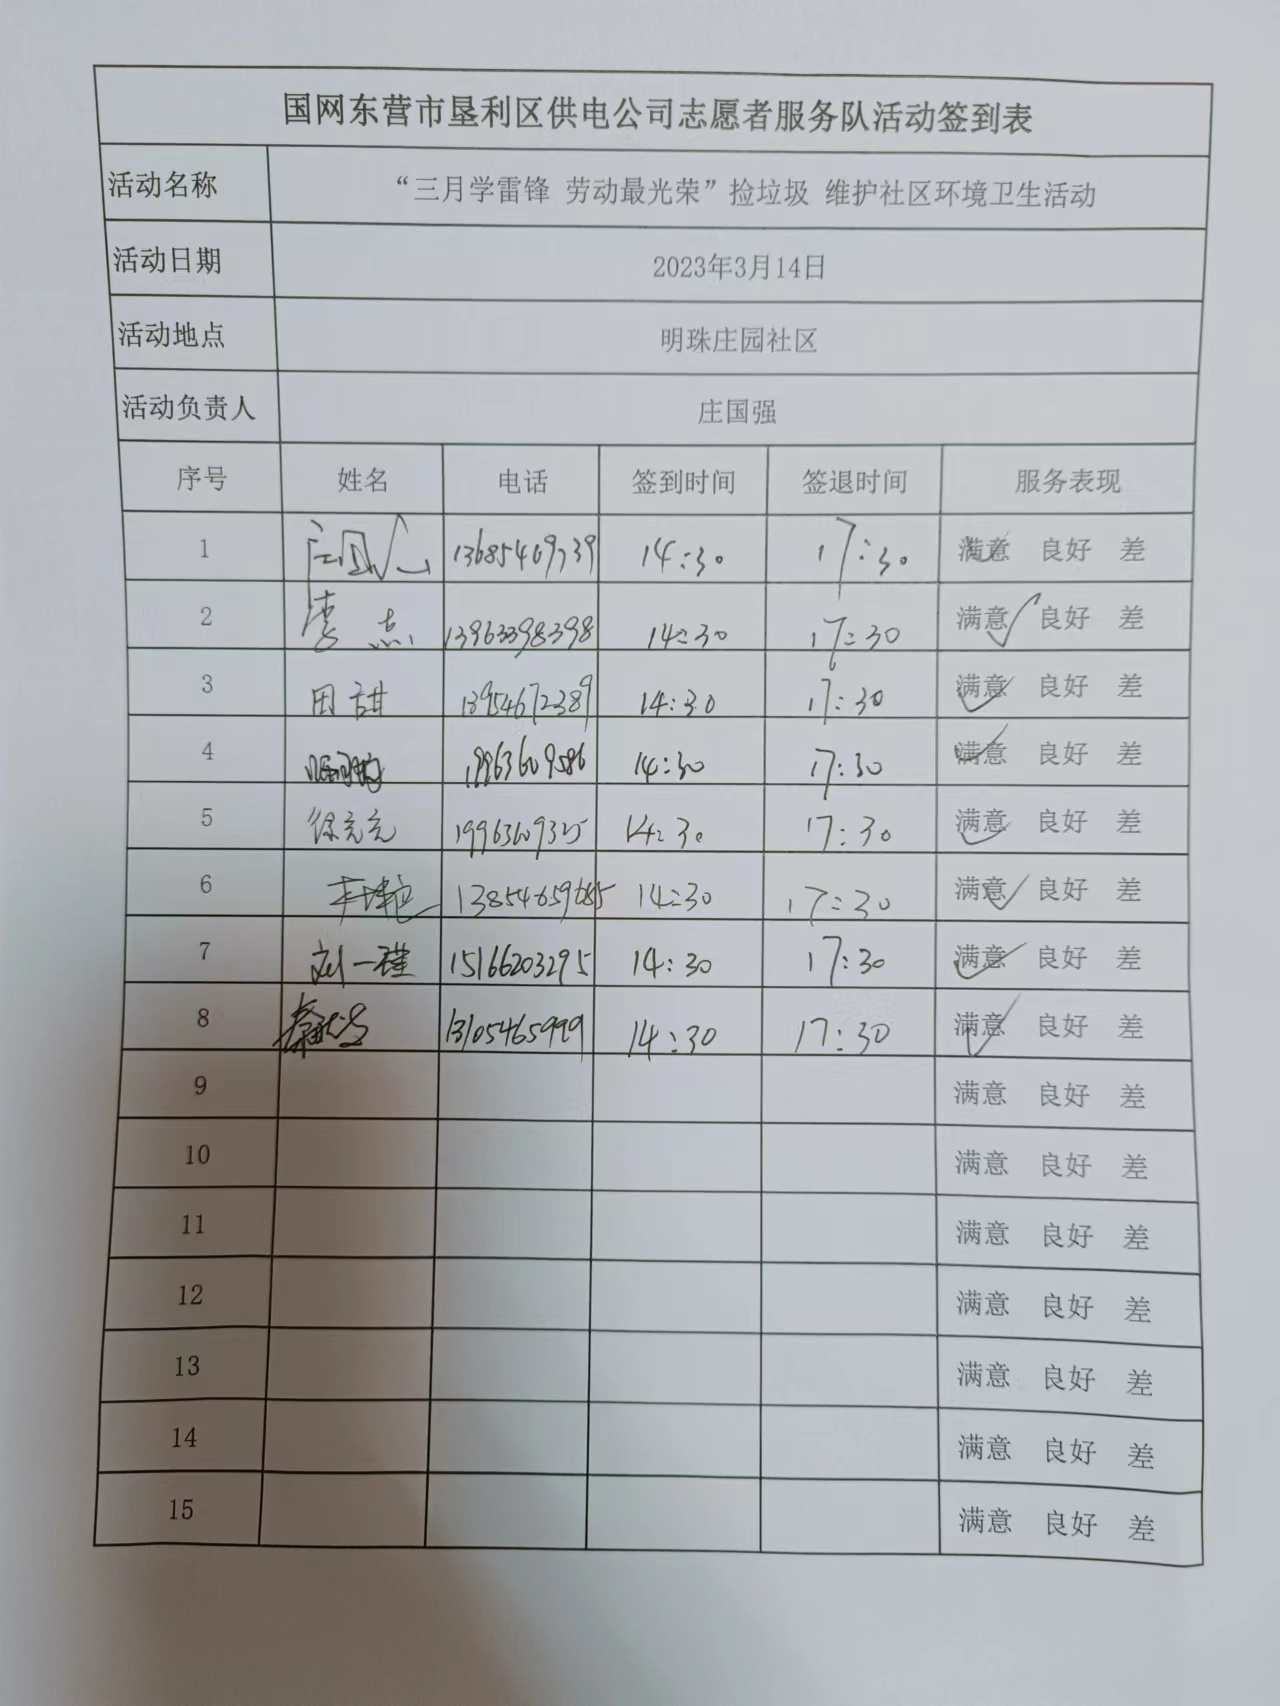 国网东营市垦利区供电公司志愿者服务队活动签到表
活动名称 “三月学雷锋 劳动最光荣”捡垃圾 维护社区环境卫生活动
活动日期 2023年3月14日
活动地点 明珠庄园社区
活动负责人 庄国强
序号 姓名 电话 签到时间 签退时间 服务表现
1 14:30 17:30 满意 良好 差
2 李杰 13963398398 14:30 17:30 满意 良好 差
3 田甜 13954672389 14:30 17:30 满意 良好 差
4 19963609586 14:30 17:30 满意 良好 差
5 徐亮亮 14:30 17:30 满意 良好 差
6 14:30 17:30 满意 良好 差
7 刘一瑾 15166203295 14:30 17:30 满意 良好 差
8 13105465999 14:30 17:30 满意 良好 差
9 满意 良好 差
10 满意 良好 差
11 满意 良好 差
12 满意 良好 差
13 满意 良好 差
14 满意 良好 差
15 满意 良好 差